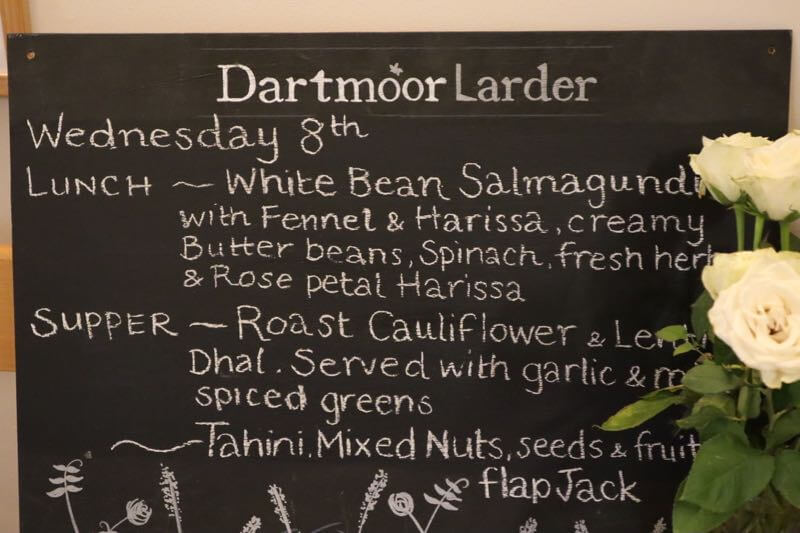 Dartmoor Larder
Wednesday 8th
LUNCH ~ White Bean Salmagundi
with Fennel & Harissa, creamy
Butter beans, Spinach, fresh herb
& Rose petal Harissa
SUPPER ~ Roast Cauliflower &
Dhal. Served with garlic &
spiced greens
~ Tahini, Mixed Nuts, seeds & fruit
flapJack